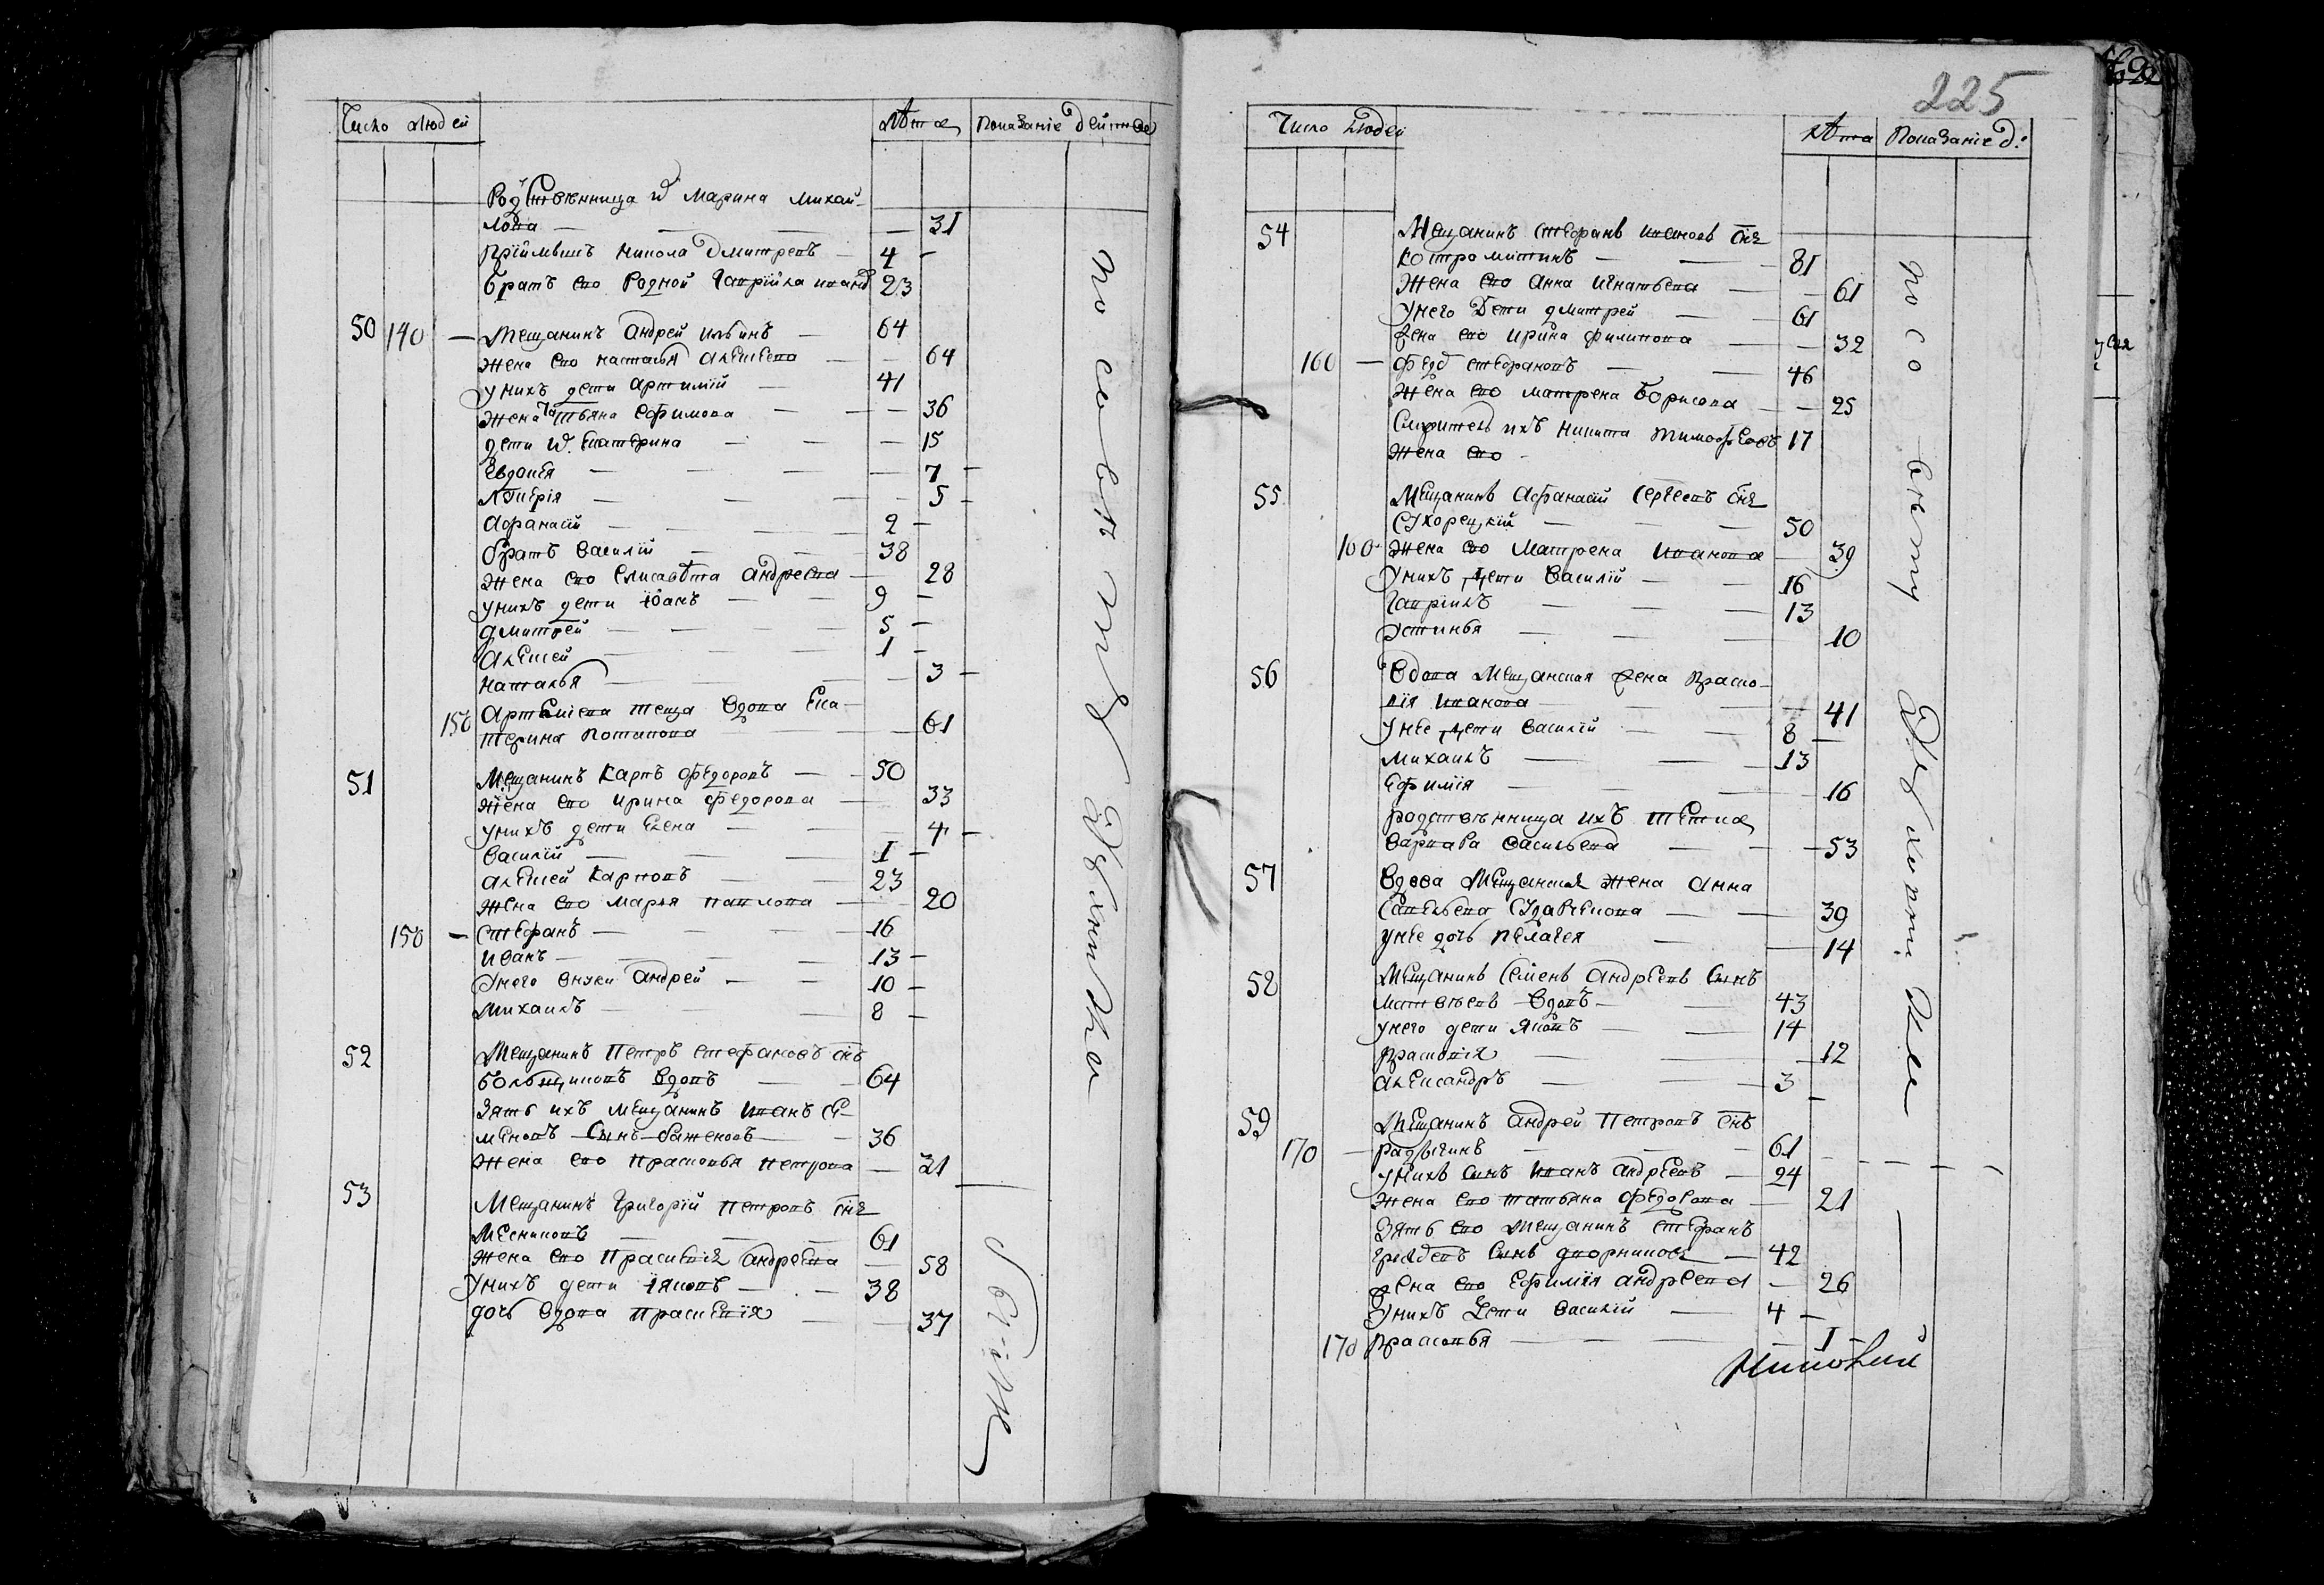 Число людей
Лѣта
Показанїе дейтва
Родственница д Марина Михай-
лова 31
Прїймышъ Никола Дмитревъ 4
братъ его Родной Гаврїйла Иванъ 23
50 140 Мещанинъ Андрей Ильинъ 64
Жена его Наталья Алексеева 64
у нихъ дети Артимїй 41
Жена Татьяна Ефимова 36
дети д. Екатерина 15
Евдокѣя 7
Лукерїя 5
Афанасїй 2
братъ Василїй 38
Жена его Елисавѣта Андреева 28
у нихъ дети Іоанъ 9
Дмитрей 5
Алексей 1
Наталья 3
150 Артемїева теща вдова Ека-
терина Потапова 61
51 Мещанинъ Карпъ Федоровъ 50
Жена его Ирина Федорова 33
у нихъ дети Елена 4
Василїй 1
Алексей Карповъ 23
Жена его Марья Павлова 20
150 Стефанъ 16
Иванъ 13
у него внуки Андрей 10
Михаилъ 8
52 Мещанинъ Петръ Стефановъ снъ
Большиковъ вдовъ 64
Зять ихъ мещанинъ Иванъ Се-
меновъ сынъ Баженовъ 36
Жена его Прасковья Петрова 31
53 Мещанинъ Григорїй Петровъ снъ
Месниковъ 61
Жена его Праскевїя Андреева 58
у нихъ дети Іяковъ 38
дочь вдова Праскевїя 37
225
Число людей
Лѣта
Показанїе д:
54 Мещанинъ Стефанъ Ивановъ снъ
Костромитинъ 81
Жена его Анна Игнатьева 61
у него дети Дмитрей 61
жена его Ирина Филипова 32
160 Федо Стефановъ 46
Жена его Матрена Борисова 25
Никита Тимофеевъ 17
Жена его
55 Мещанинъ Афанасїй Сергеевъ снъ
Сухорецкїй 50
160 Жена его Матрена Иванова 39
у нихъ дети Василїй 16
Гаврїилъ 13
Устинья 10
56 Вдова Мещанская жена Праско-
вїя Иванова 41
у нее дети Василїй 8
Михаилъ 13
Ефимїя 16
родственница ихъ тетка
Варвара Васильева 53
57 Вдова Мещанская жена Анна
Савельева 39
у нее дочь Пелагея 14
58 Мещанинъ Семенъ Андреевъ сынъ
Матвеевъ вдовъ 43
у него дети Яковъ 14
Прасковїя 12
Александръ 3
59 Мещанинъ Андрей Петровъ снъ
170 Радыгинъ 61
у нихъ сынъ Иванъ Андреевъ 24
Жена его Татьяна Федорова 21
Зять его мещанинъ Стефанъ
сынъ Дворниковъ 42
жена его Ефимїя Андреева 26
у нихъ дети Василїй 4
170 Прасковья 1